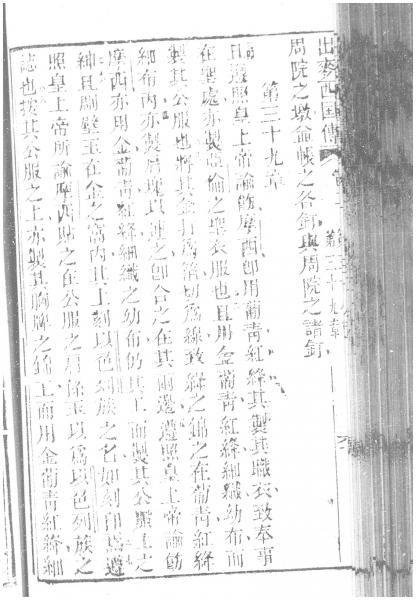 出麥西国傳 第三十九章
周院之墩並帳之各釘與周院之諸釘
第三十九章
且遵照皇上帝諭飭摩西卽用葡靑紅絳其製其職衣致奉事
在聖處亦製亞倫之聖衣服也且用金葡靑紅絳細織幼布而
製其公服也將其金打爲箔切爲線致絳之錦之在葡靑紅絳
細布內亦製肩塊以連之卽合之在其兩邊遵照皇上帝諭飭
摩西亦用金葡靑紅絳細織之幼布的其上面製其公服之
紳且刷璧玉在金之窩內其上刻以色列族之名如刻印焉遵
照皇上帝所諭摩西貼之在公服之肩係玉以爲以色列族之
誌也按其公服之上亦製其胸牌之錦上面用金葡靑紅絳細